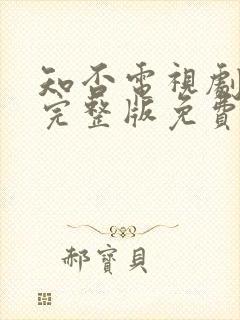 知否電視劇
完整版免費
郝寶貝